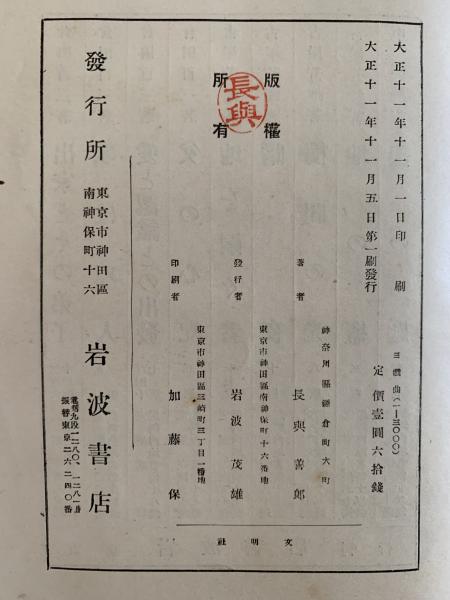 大正十一年十一月一日印刷
大正十一年十一月五日第一刷發行
三戲曲(一—三〇〇〇)
定價壹圓六拾錢
版權
所有
長與
著者
神奈川縣鎌倉町大町
長與善郎
發行者
東京市神田區南神保町十六番地
岩波茂雄
印刷者
東京市神田區三崎町三丁目一番地
加藤保
文明社
發行所
東京市神田區
南神保町十六
岩波書店
電話九段一二八〇、一二八一番
振替東京二六二四〇番